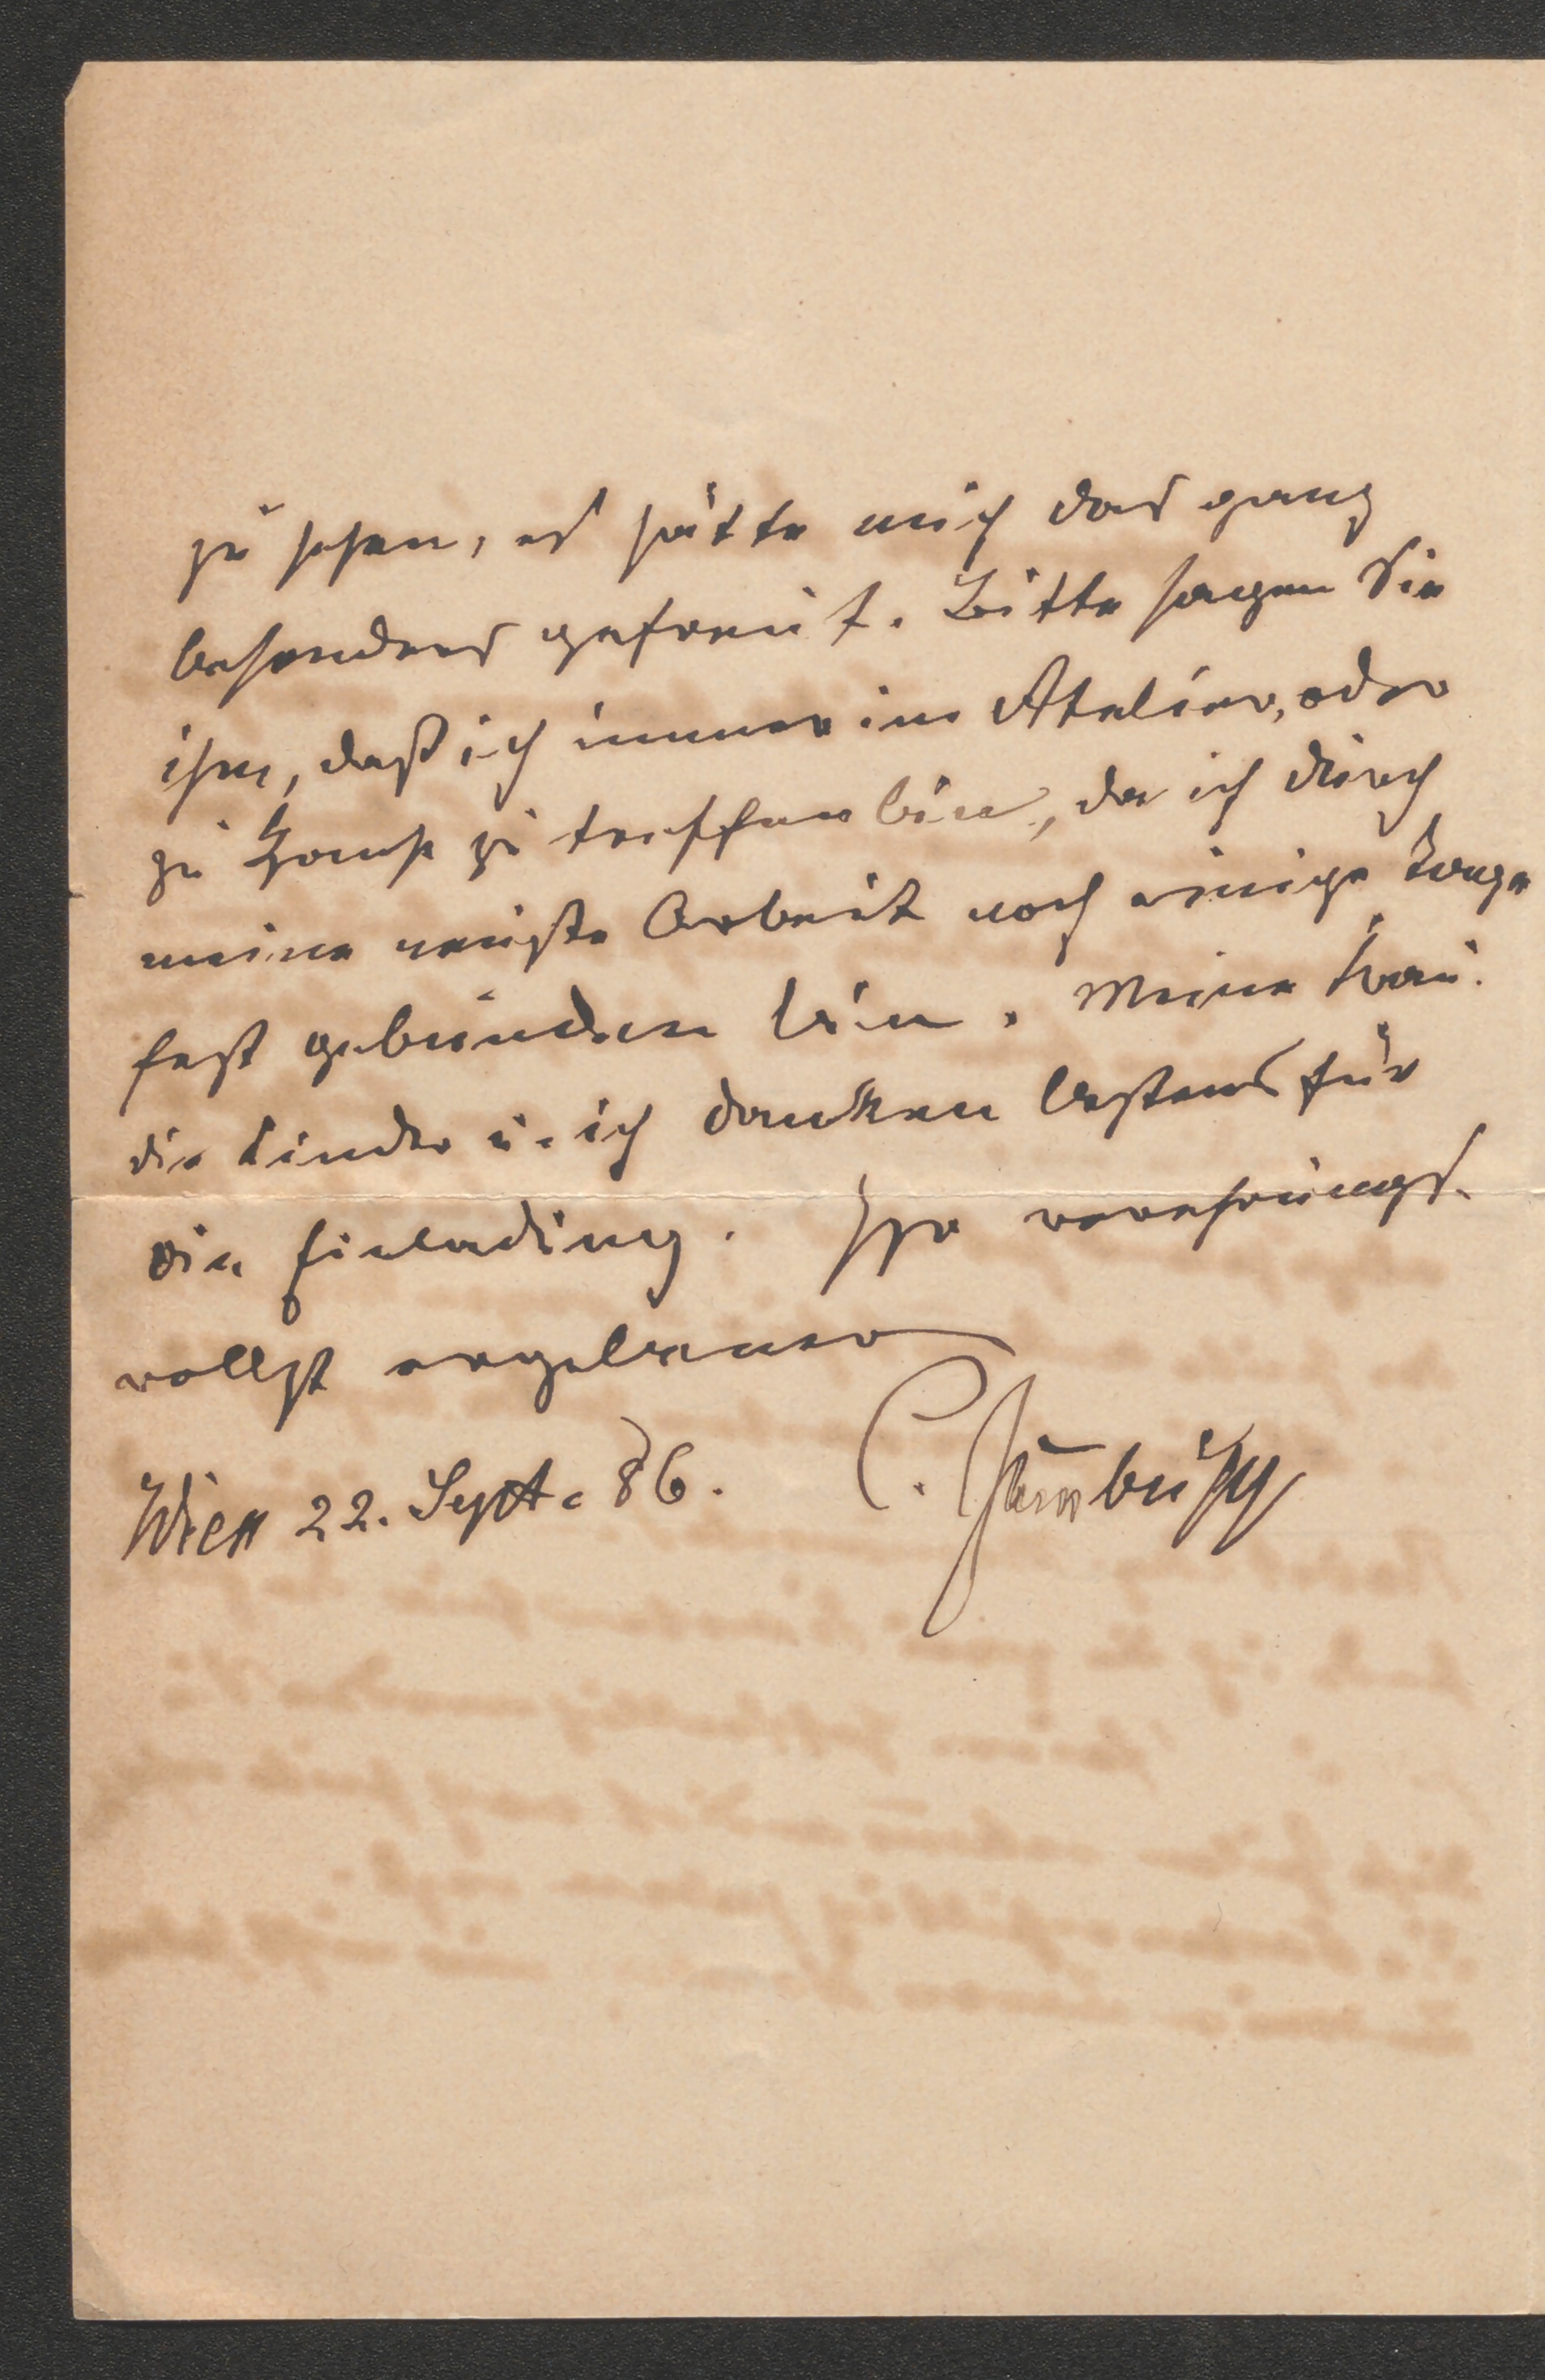 zu sehen, es hätte mich das ganz
besonders gefreut. Bitte sagen Sie
ihm, daß ich immer im Atelier, oder
zu Hause zu treffen bin, da ich durch
meine neuste Arbeit noch einige Tage
fest gebunden bin. Meine Frau.
die Kinder u. ich danken bestens für
die Einladung. Ihr verehrungs-
vollst ergebener
Wien 22. Sept. 86. C. Zumbusch